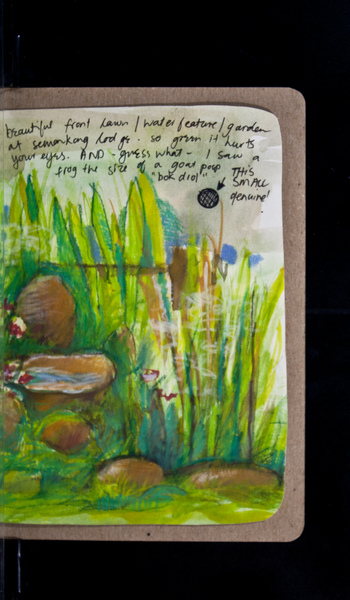 beautiful front lawn / water feature / garden
at semonkong lodge. so green it hurts
your eyes. AND - guess what - I saw a
frog the size of a goat poop
"bok drol"
THIS
SMALL
genuine!